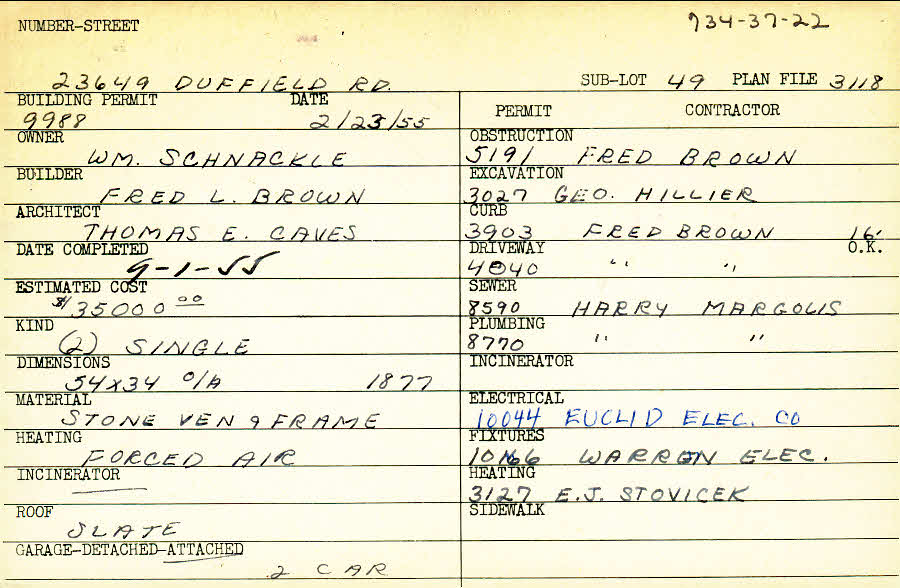 NUMBER-STREET 734-37-22
23649 DUFFIELD RD. SUB-LOT 49 PLAN FILE 3118
BUILDING PERMIT DATE
9988 2/23/55
OWNER
WM. SCHNACKLE
BUILDER
FRED L. BROWN
ARCHITECT
THOMAS E. CAVES
DATE COMPLETED
9-1-55
ESTIMATED COST
$35000 00
KIND
(2) SINGLE
DIMENSIONS
54x34 O/A 1877
MATERIAL
STONE VEN & FRAME
HEATING
FORCED AIR
INCINERATOR
ROOF
SLATE
GARAGE-DETACHED-ATTACHED
2 CAR
PERMIT CONTRACTOR
OBSTRUCTION
5191 FRED BROWN
EXCAVATION
3027 GEO. HILLIER
CURB
3903 FRED BROWN 16'
DRIVEWAY O.K.
4040 " "
SEWER
8590 HARRY MARGOLIS
PLUMBING
8770 " "
INCINERATOR
ELECTRICAL
10044 EUCLID ELEC. CO
FIXTURES
10166 WARREN ELEC.
HEATING
3127 E.J. STOVICEK
SIDEWALK